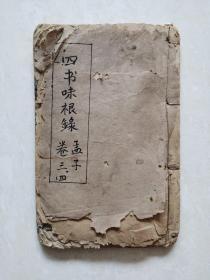 四书味根錄
孟子
卷三、四